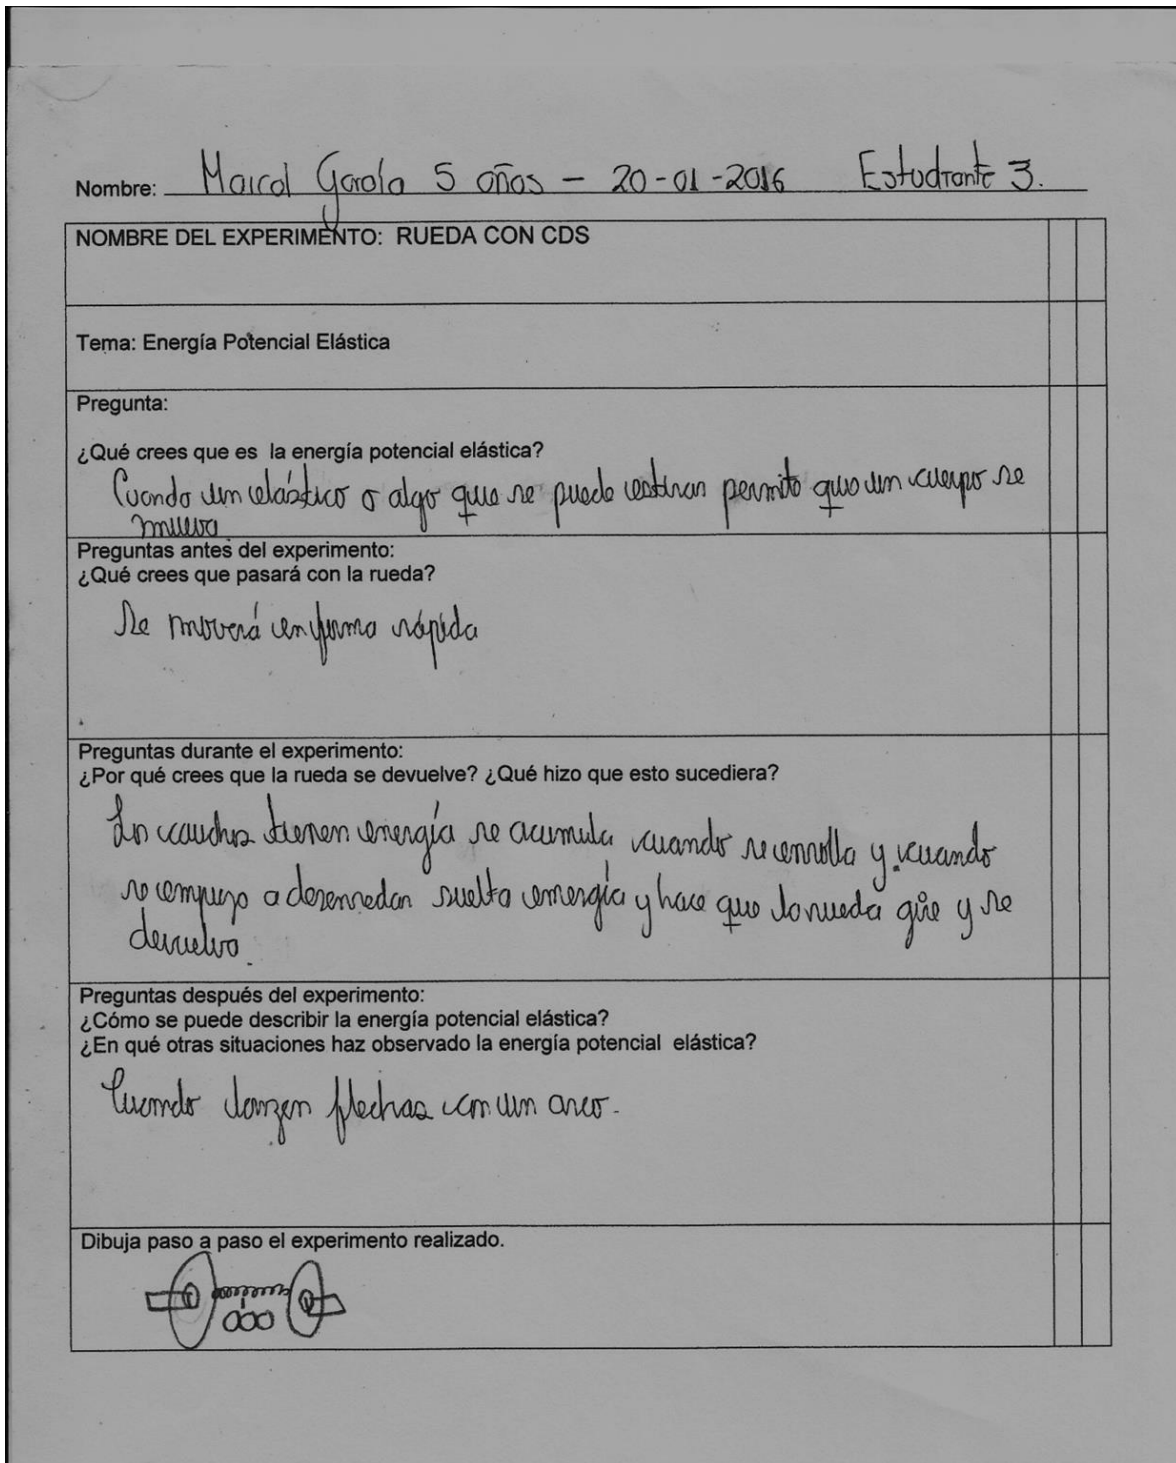 Nombre: Maicol García 5 años - 20-01-2016 Estudiante 3.
NOMBRE DEL EXPERIMENTO: RUEDA CON CDS
Tema: Energía Potencial Elástica
Pregunta:
¿Qué crees que es la energía potencial elástica?
Cuando un elástico o algo que se puede estirar permite que un cuerpo se
mueva.
Preguntas antes del experimento:
¿Qué crees que pasará con la rueda?
Se moverá en forma rápida
Preguntas durante el experimento:
¿Por qué crees que la rueda se devuelve? ¿Qué hizo que esto sucediera?
Los cauchos tienen energía se acumula cuando se enrolla y cuando
se empieza a desenredar suelta energía y hace que la rueda gire y se
devuelva.
Preguntas después del experimento:
¿Cómo se puede describir la energía potencial elástica?
¿En qué otras situaciones haz observado la energía potencial elástica?
Cuando lanzan flechas con un arco.
Dibuja paso a paso el experimento realizado.